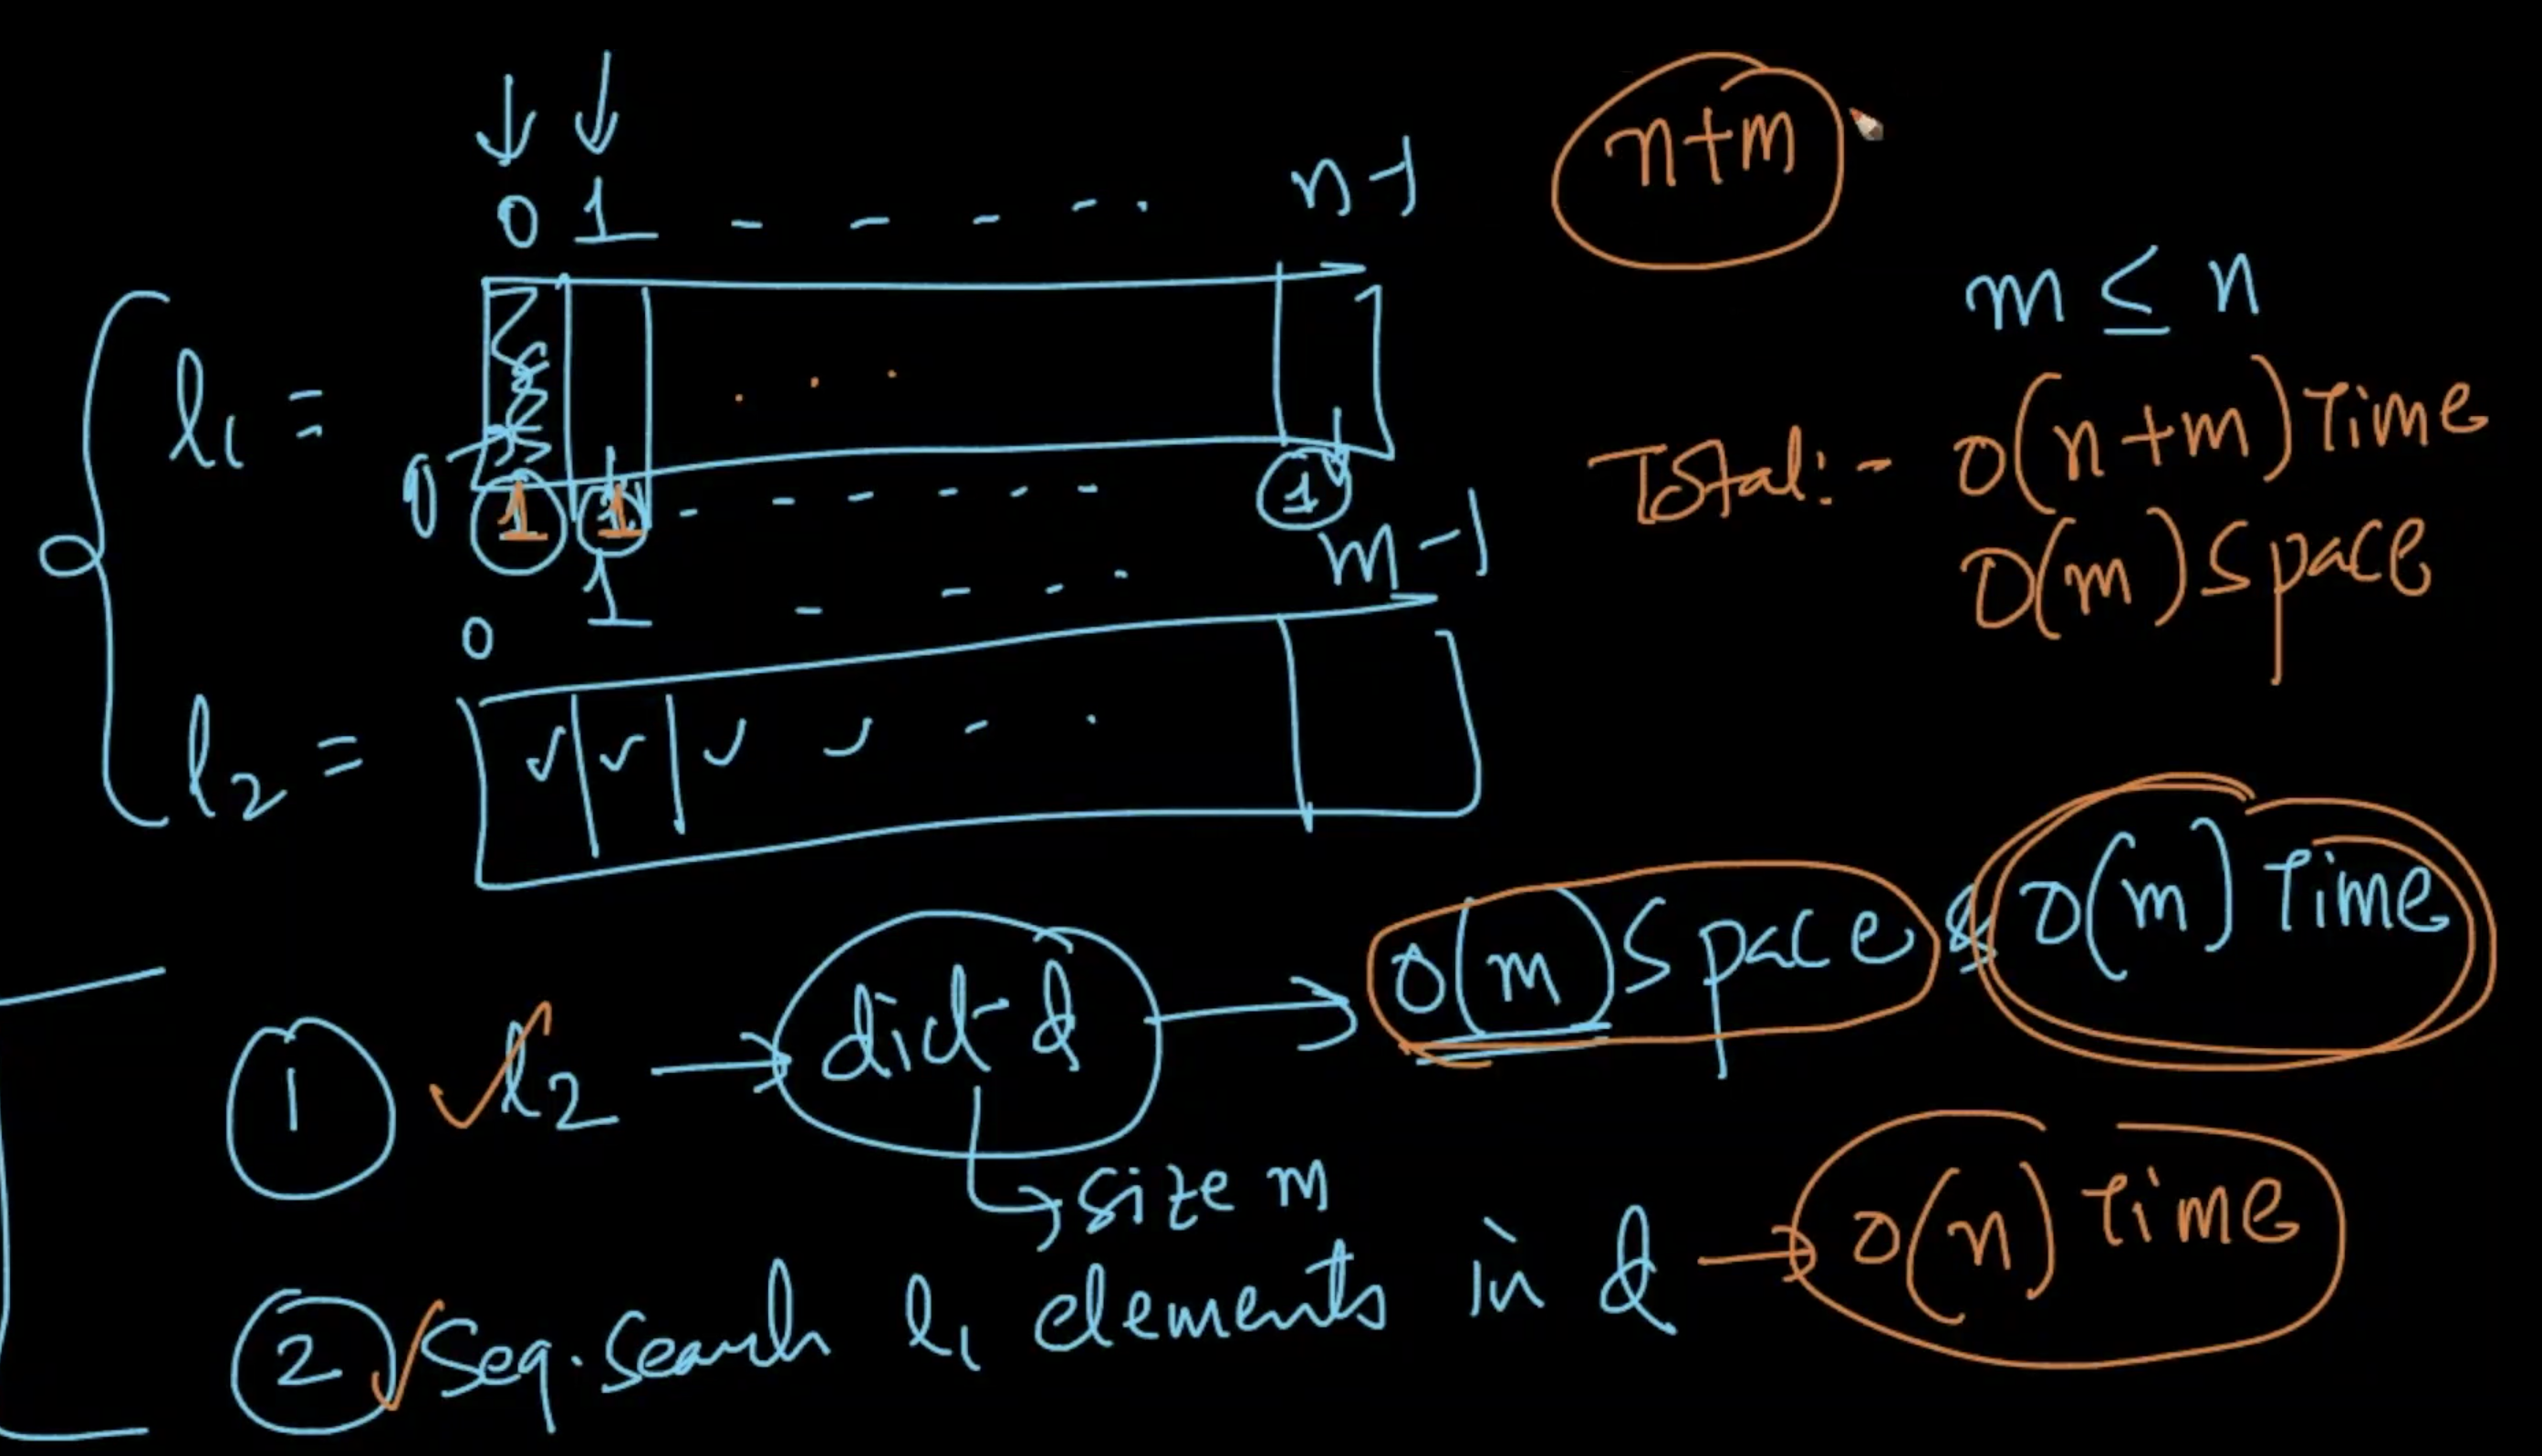 0 1 - - - - . n-1
n+m
m ≤ n
l1 =
Total:- O(n+m) Time
O(m) Space
0 1 1 - - - - - - 1
0 1 - - - - m-1
l2 =
1 l2 → dict d → O(m) Space & O(m) Time
↳ size m
2 Seq. Search l1 elements in d → O(n) Time